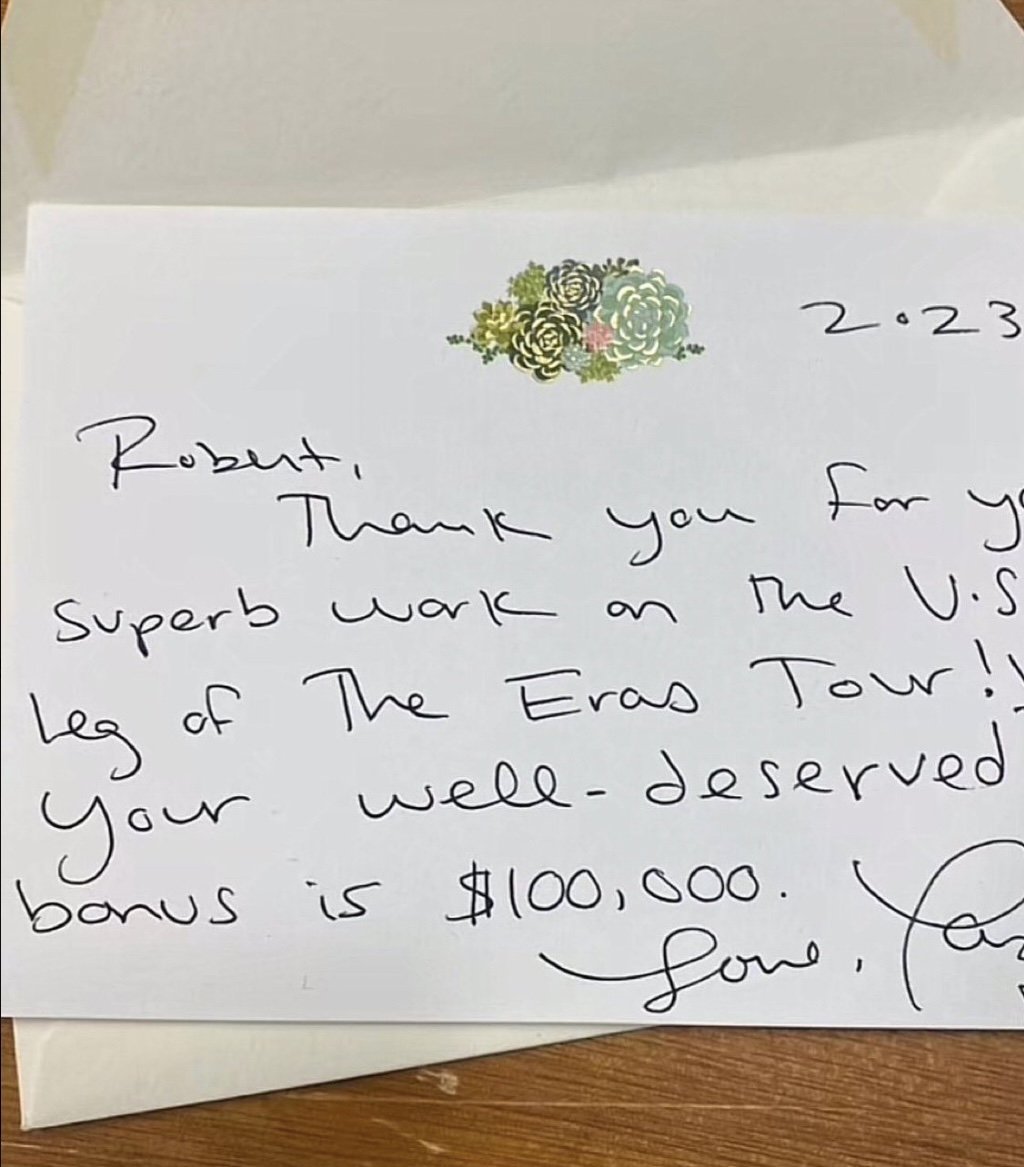 2.23
Robert,
Thank you for yo
superb work on the U.S
leg of The Eras Tour!!
Your well-deserved
bonus is $100,000.
Love,